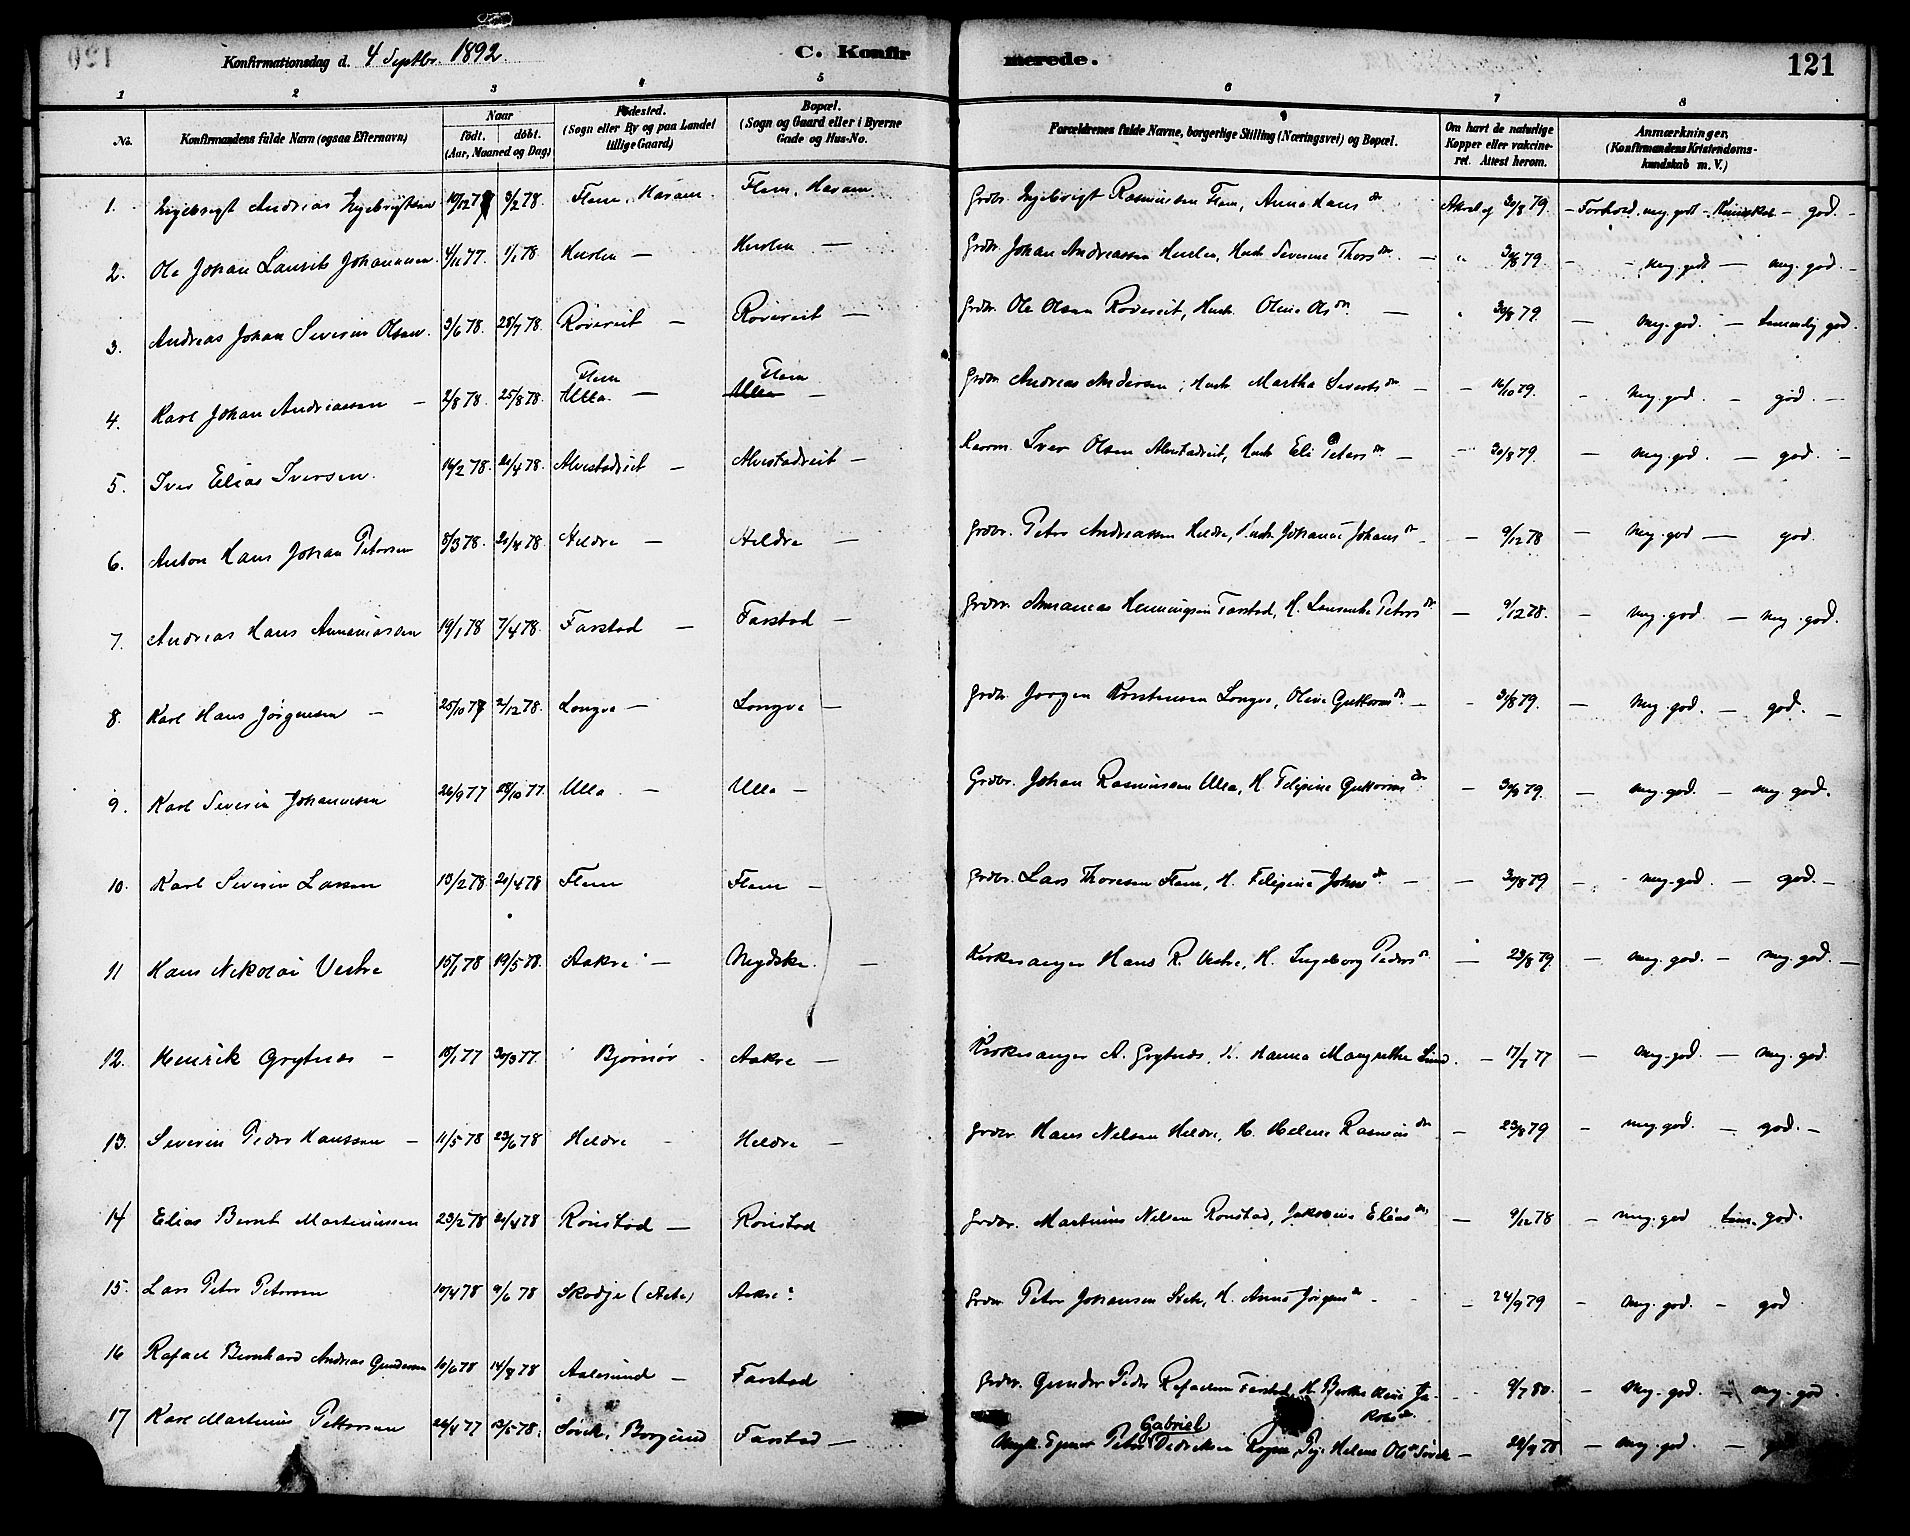 Konfirmationsdag d. 4 Septbr. 1892. C. Konfirmerede. 121
1 2 3 4 5 6 7 8
No. Konfirmandens fulde Navn (ogsaa Efternavn) Naar födt. döbt. (Aar, Maaned og Dag) Födested. (Sogn eller By og paa Landet tillige Gaard) Bopæl. (Sogn og Gaard eller i Byerne Gade og Hus-No. Forældrenes fulde Navne, borgerlige Stilling (Næringsvei) og Bopæl. Om havt de naturlige Kopper eller vakcineret. Attest herom. Anmærkninger. (Konfirmandens Kristendomskundskab m. V.)
1. Ingebrigt Andreas Ingebrigtsen 10/12 77 3/2 78. Flem, Haram. Flem, Haram Grdbr. Ingebrigt Rasmussen Flem, Anna Hans dr 30/8 79. - Forhold meg. godt - Kundskab - god. -
2. Ole Johan Laurits Johannesen 4/11 77. 1/1 78. — — Grdbr. Johan Andreassen Severine Thors dr — " 30/8 79. - meg. godt — meg. god. -
3. Andreas Johan Severin Olsen. 3/6 78. 28/7 78. Rövereit — Rövereit — Grdbr. Ole Olsen Rövereit, Hust. Oline Ols dr. — 30/8 79. — meg. god. — temmelig god.
4. Karl Johan Andreassen — 2/8 78. 25/8 78. Flem Ulla. — Flem Ulla — Grdbr. Andreas Andersen, Hust. Martha Siverts dr — - 16/10 79. - meg. god. - god. —
5. Iver Elias Iversen. 16/2 78. 21/4 78. Alvestadreit — Alvestadreit — Iver Olsen Alvestadreit, Hust. Eli Peters dr — 30/8 79. — meg. god. — god. -
6. Anton Hans Johan Petersen 8/3 78. 21/4 78. Hildre — Hildre — Grdbr. Peter Andreassen Hildre, Hust. Johanne Johans dr — 9/12 78 — meg. god — god.
7. Andreas Hans Ananiassen 19/1 78 7/4 78. Farstad — Farstad — Grdbr. Ananias Henningsen Farstad, H. Peters dr — 9/12 78. — meg. god. — meg. god.
8. Karl Hans Jörgensen — 25/10 77 2/12 78. Longva — Longva — Grdbr. Jörgen Longva, Oline Guttorms dr. — - 31/8 79. — meg. god. — god. —
9. Karl Severin Johannesen 26/9 77 28/10 77. Ulla. — Ulla — Grdbr. Johan Rasmussen Ulla, H. Filipine Guttorms dr — 30/8 79. — meg. god. — meg. god.
10. Karl Severin Larsen 13/2 78. 21/4 78 Flem Flem — Grdbr. Lars Thoresen Flem, H. Filipine Johns dr. — — 30/8 79 — meg. god. — god. —
11 Hans Nikolai Vestre 15/1 78 19/5 78. Aakre — — Kirkesanger Hans R. Vestre, H. Ingeborg Peders dr — 23/8 79 — meg. god. — meg. god. —
12. Henrik Grytnes — 18/1 77 30/3 77. Björnör - Aakre — Kirkesanger A. Grytnes, H. Hanna Margrethe Lind. — 17/7 77 — meg. god. — meg. god.
13. Severin Peder Hanssen — 11/5 78 23/6 78 Hildre Hildre — Grdbr. Hans Nilsen Hildre, H. Helene Rasmus dr — 23/8 79 — meg. god. — god. —
14 Elias Bernt Martinussen 23/2 78 21/4 78 Rönstad — Rönstad Grdbr. Martinus Nilsen Rönstad, Jakobine Elias dr — 9/12 78 — meg. god tem. god.
15. Lars Peter Petersen 10/4 78 9/6 78 Skodje Aakre Grdbr. Peter Johansen H. Anne Jörgens dr — 24/9 79 — meg. god. — god
16 Rafael Bernhard Andreas Gundersen 10/6 78 14/8 78 Aalesund — Farstad Grdbr. Gunder Peder Rafaelsen Farstad, H. Jakobs dr. 9/7 80. — meg. god. — meg. god.
17 Karl Martinus Pettersen 26/4 77 13/5 78. Sövik, Borgund Farstad — Ungk. Peter Gabriel Dedriksen Pig. Helene Ols dr Sövik — — meg. god. —